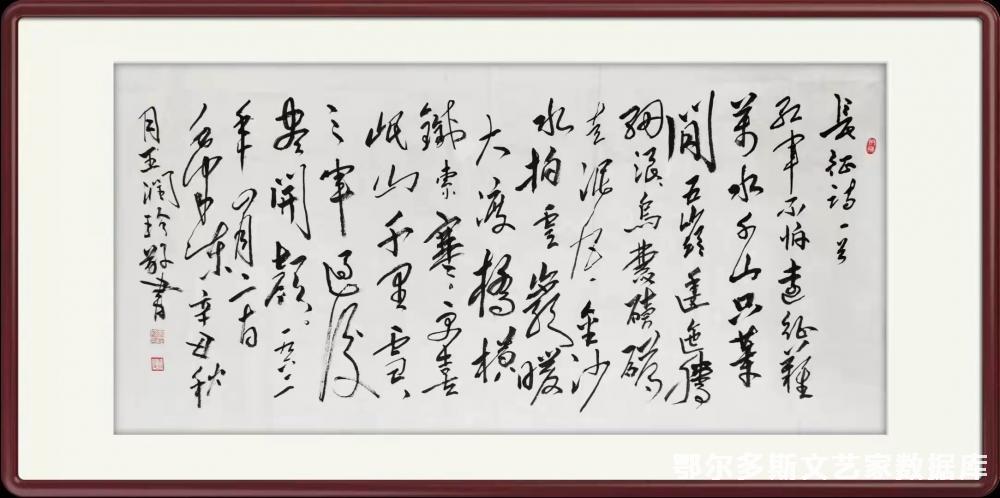 長征詩一首
红軍不怕遠征難
萬水千山只等
閒五嶺逶迤騰
細浪烏蒙磅礴
走泥丸金沙
水拍雲崖暖
大渡橋橫
鐵索寒更喜
岷山千里雪
三軍過後
盡開顔一九六二
年四月二十日
辛丑秋
月王潤玲敬書
鄂尔多斯文艺家数据库